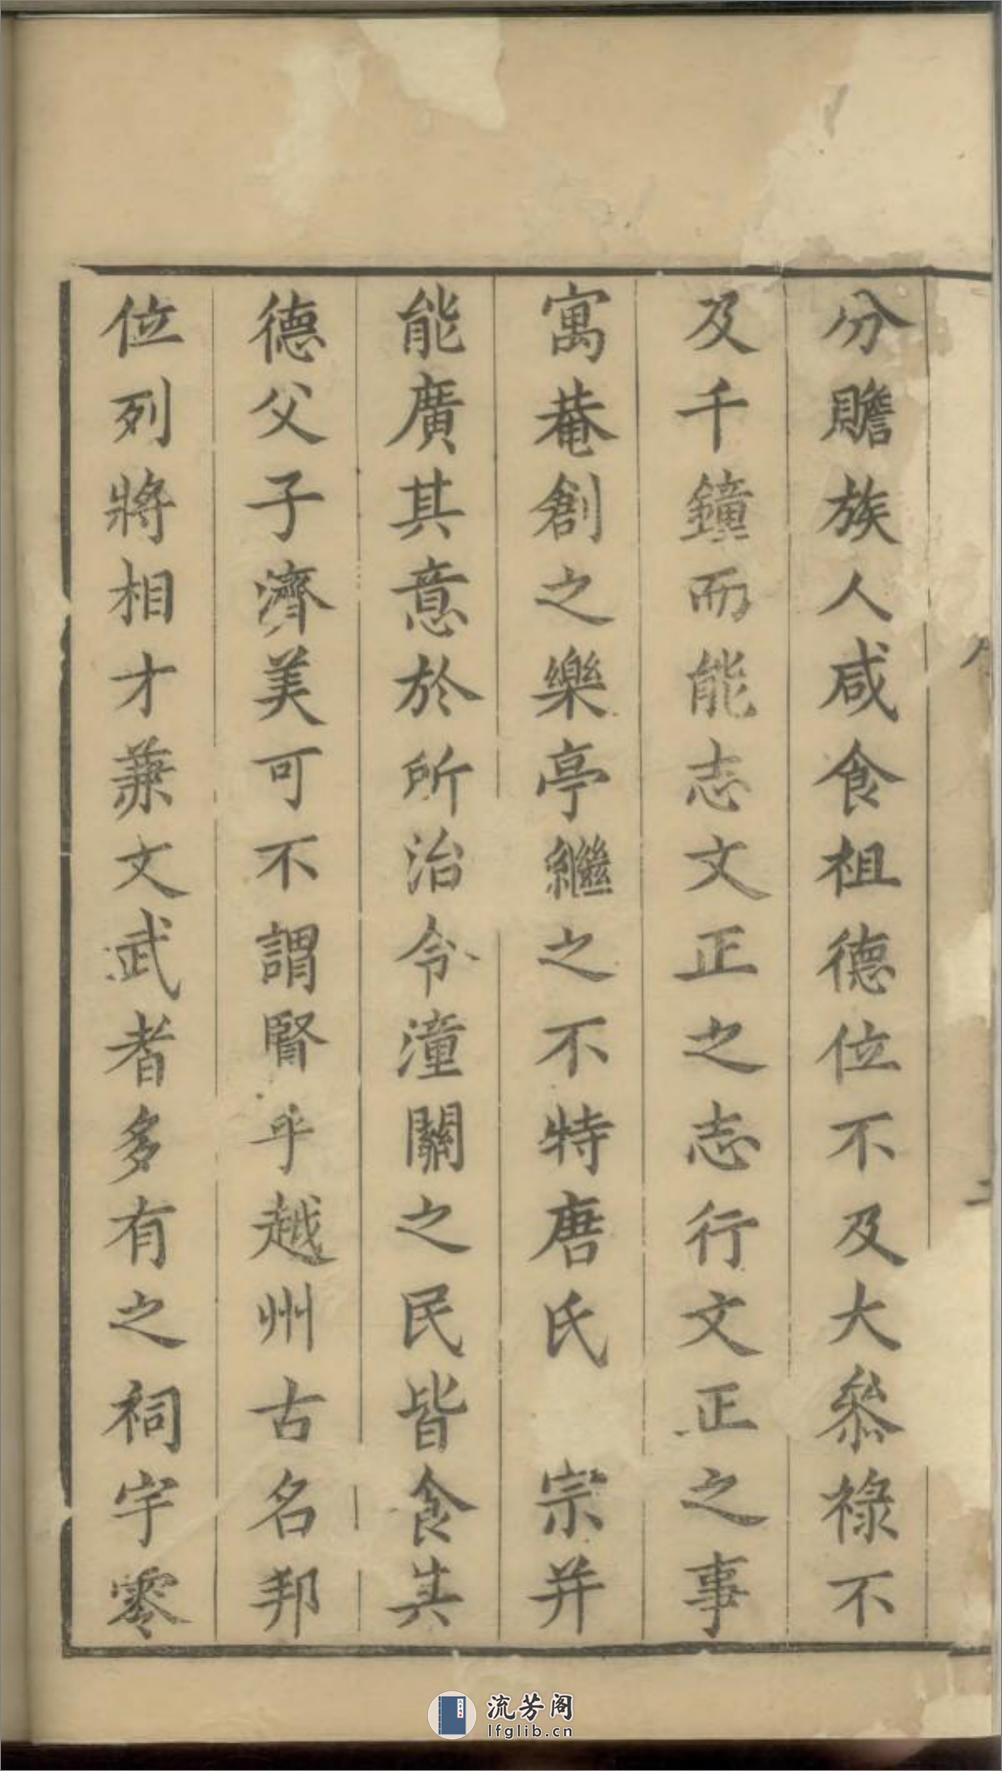 分贍族人咸食祖德位不及大叅祿不
及千鐘而能志文正之志行文正之事
寓菴創之樂亭繼之不特唐氏　宗并
能廣其意於所治令潼關之民皆食其
德父子濟美可不謂賢乎越州古名邦
位列將相才兼文武者多有之祠宇零
流芳阁
lfglib.cn